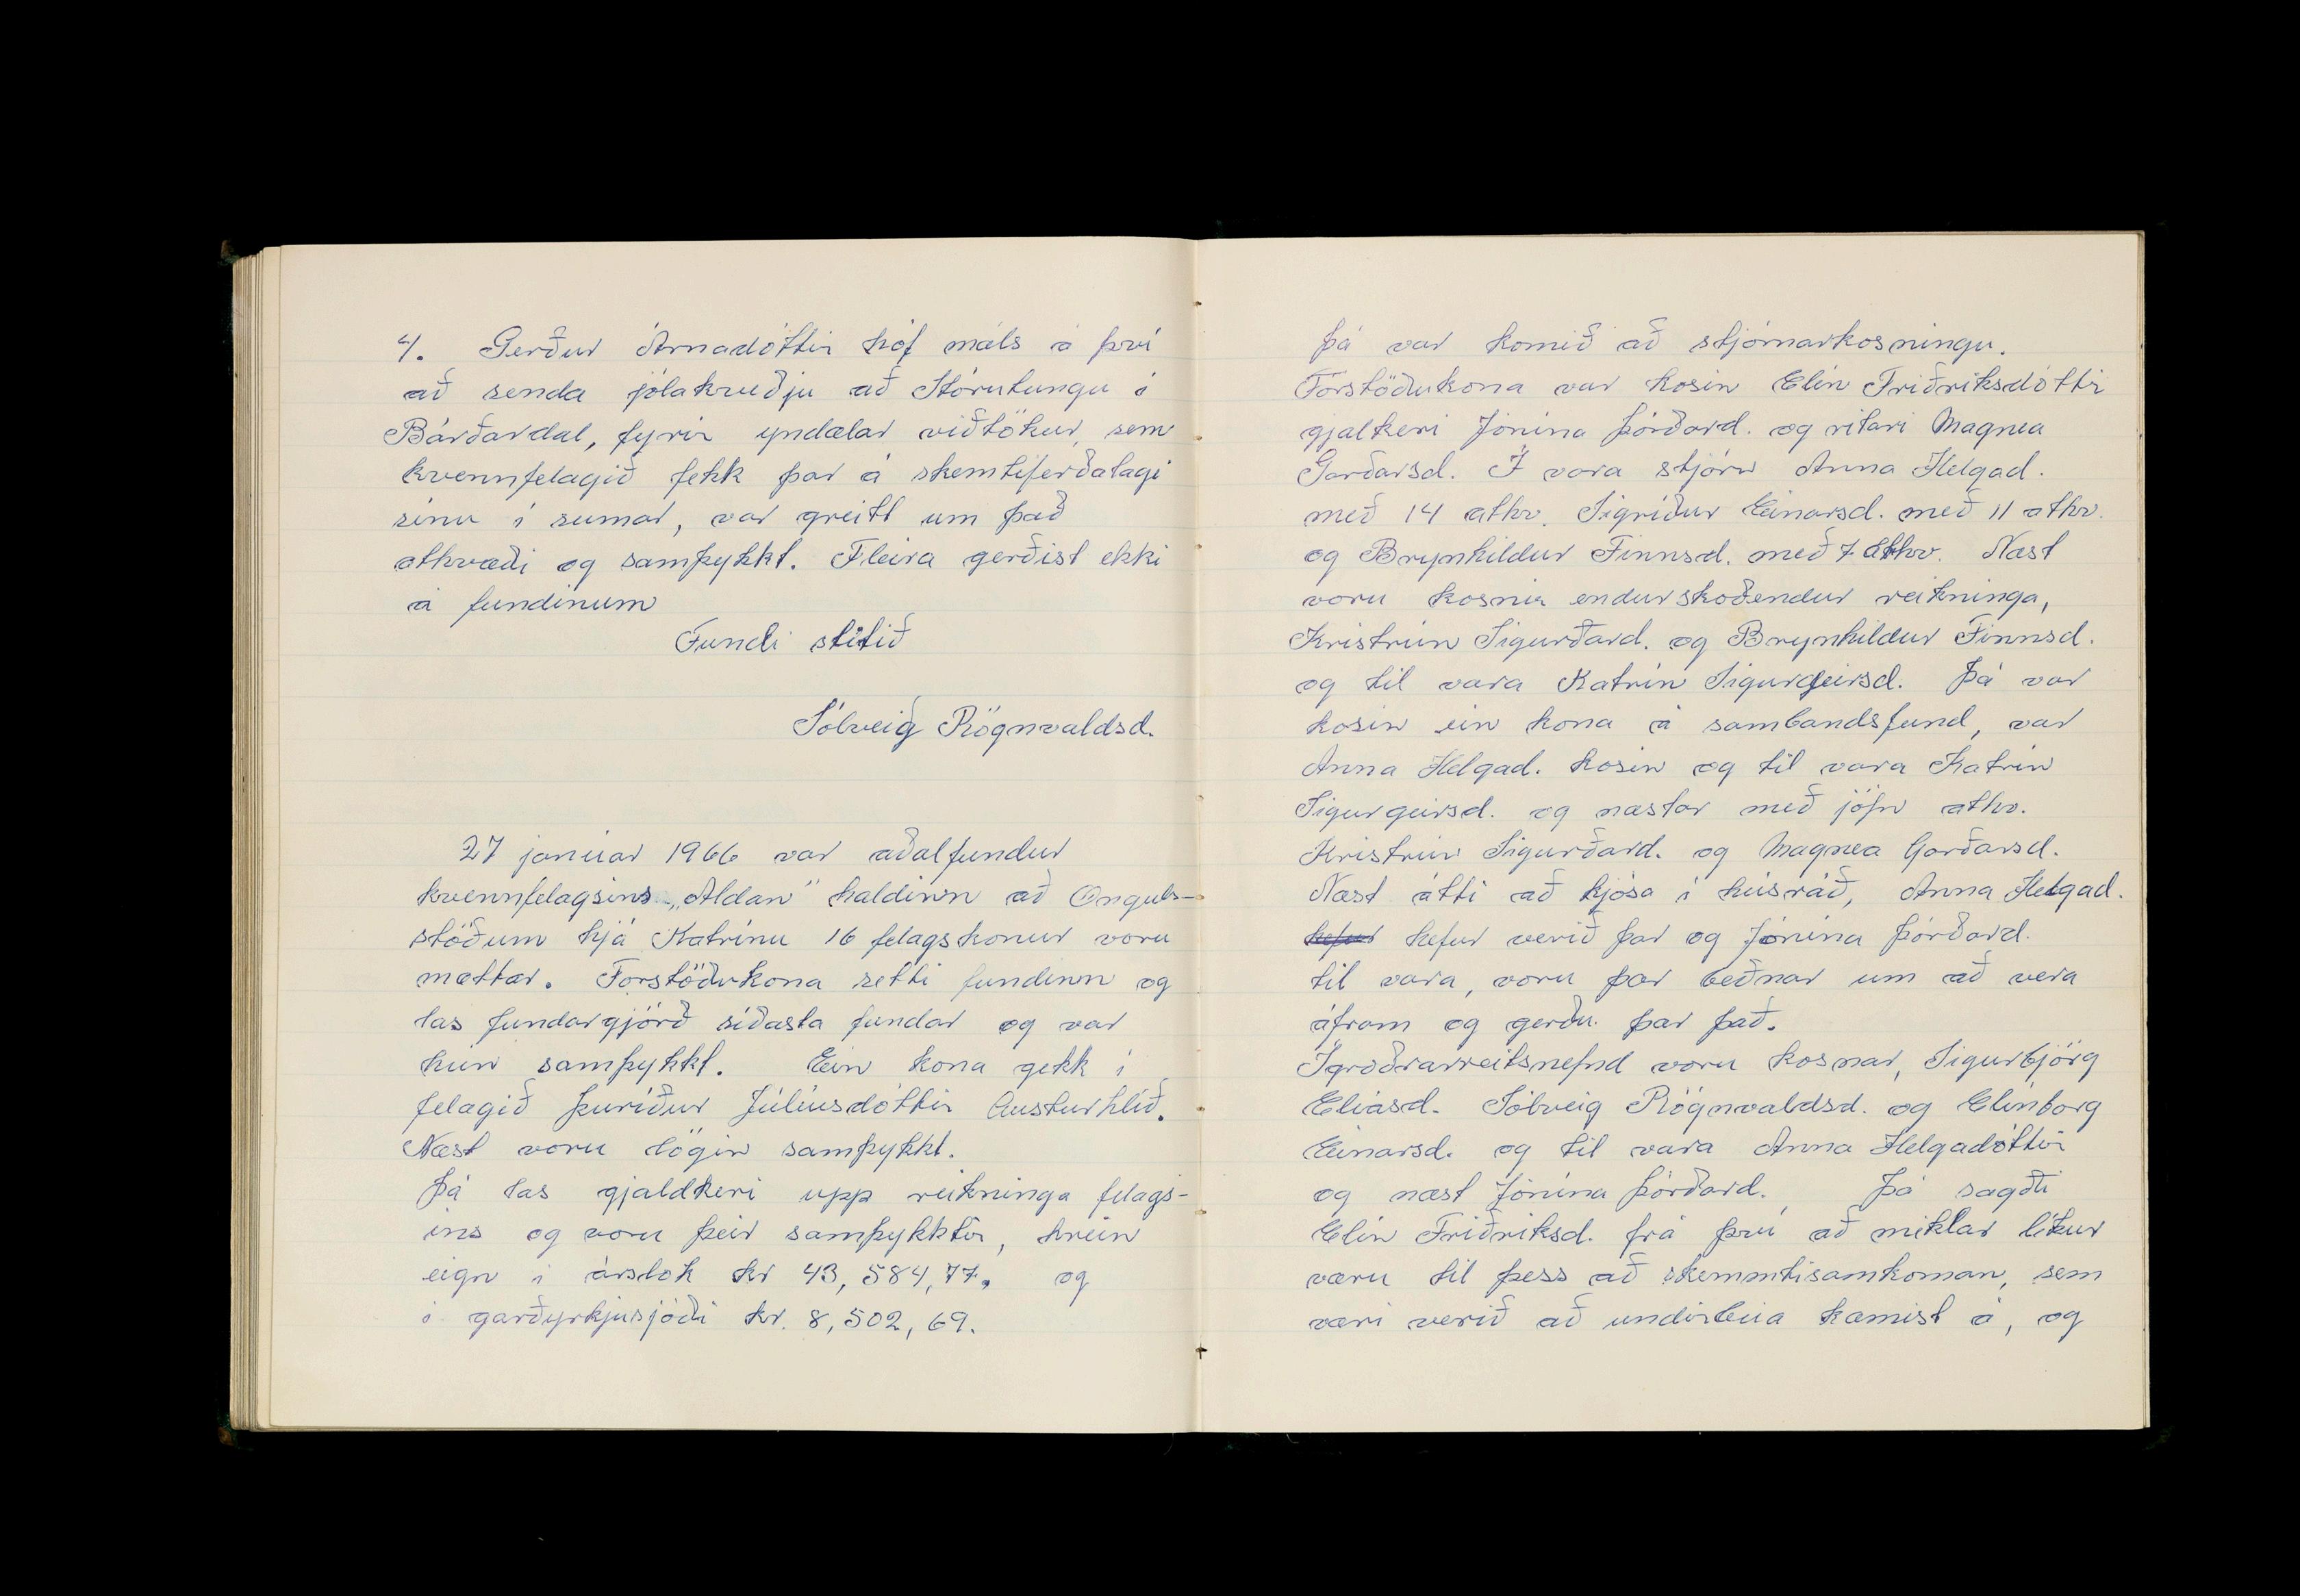 4. Gerður Árnadóttir hóf máls á því
að senda jólakveðju að Stórutungu í
Bárðardal, fyrir yndælar viðtökur, sem
kvennfelagið fekk þar á skemtiferðalagi
sínu í sumar, var greitt um það
atkvæði og samþykkt. Fleira gerðist ekki
á fundinum
Fundi slitið
Sólveig Rögnvaldsd.
27 janúar 1966 var aðalfundur
kvennfelagsins „Aldan" haldinn að Onguls-
stöðum hjá Katrínu 16 felagskonur voru
mættar. Forstöðukona setti fundinn og
las fundargjörð síðasta fundar og var
hún samþykkt. Ein kona gekk í
felagið Þuríður Júlíusdóttir Austurhlíð.
Næst voru lögin samþykkt.
Þá las gjaldkeri upp reikninga felags-
ins og voru þeir samþykktir, hrein
eign í árslok kr 43,584,77, og
í garðyrkjusjóði kr. 8,502,69.
Þá var komið að stjórnarkosningu.
Forstöðukona var kosin Elín Friðriksdóttir
gjalkeri Jónína Þórðard. og ritari Magnea
Garðarsd. Í vara stjórn Anna Helgad.
með 14 atkv. Sigríður Einarsd. með 11 atkv.
og Brynhildur Finnsd. með 7 atkv. Næst
voru kosnir endurskoðendur reikninga,
Kristrún Sigurðard. og Brynhildur Finnsd.
og til vara Katrín Sigurgeirsd. Þá var
kosin ein kona á sambandsfund, var
Anna Helgad. kosin og til vara Katrín
Sigurgeirsd. og næstar með jöfn atkv.
Kristrún Sigurðard. og Magnea Garðarsd.
Næst átti að kjósa í húsráð, Anna Helgad.
hefur hefur verið þar og Jónína Þórðard.
til vara, voru þær beðnar um að vera
áfram og gerðu þær það.
Í gróðrarreitsnefnd voru kosnar, Sigurbjörg
Elíasd. Sólveig Rögnvaldsd. og Elínborg
Einarsd. og til vara Anna Helgadóttir
og næst Jónína Þórðard. Þá sagði
Elín Friðriksd. frá því að miklar líkur
væru til þess að skemmtisamkoman, sem
væri verið að undirbúa kæmist á, og